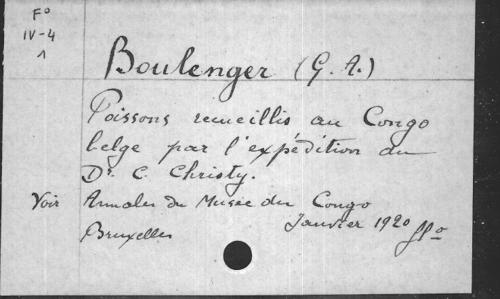 Fo
IV-4
1
Boulenger (G. A.)
Poissons recueillis au Congo
belge par l'expédition du
Dr. C. Christy.
Voir Annales du Musée du Congo
Bruxelles Janvier 1920 flo